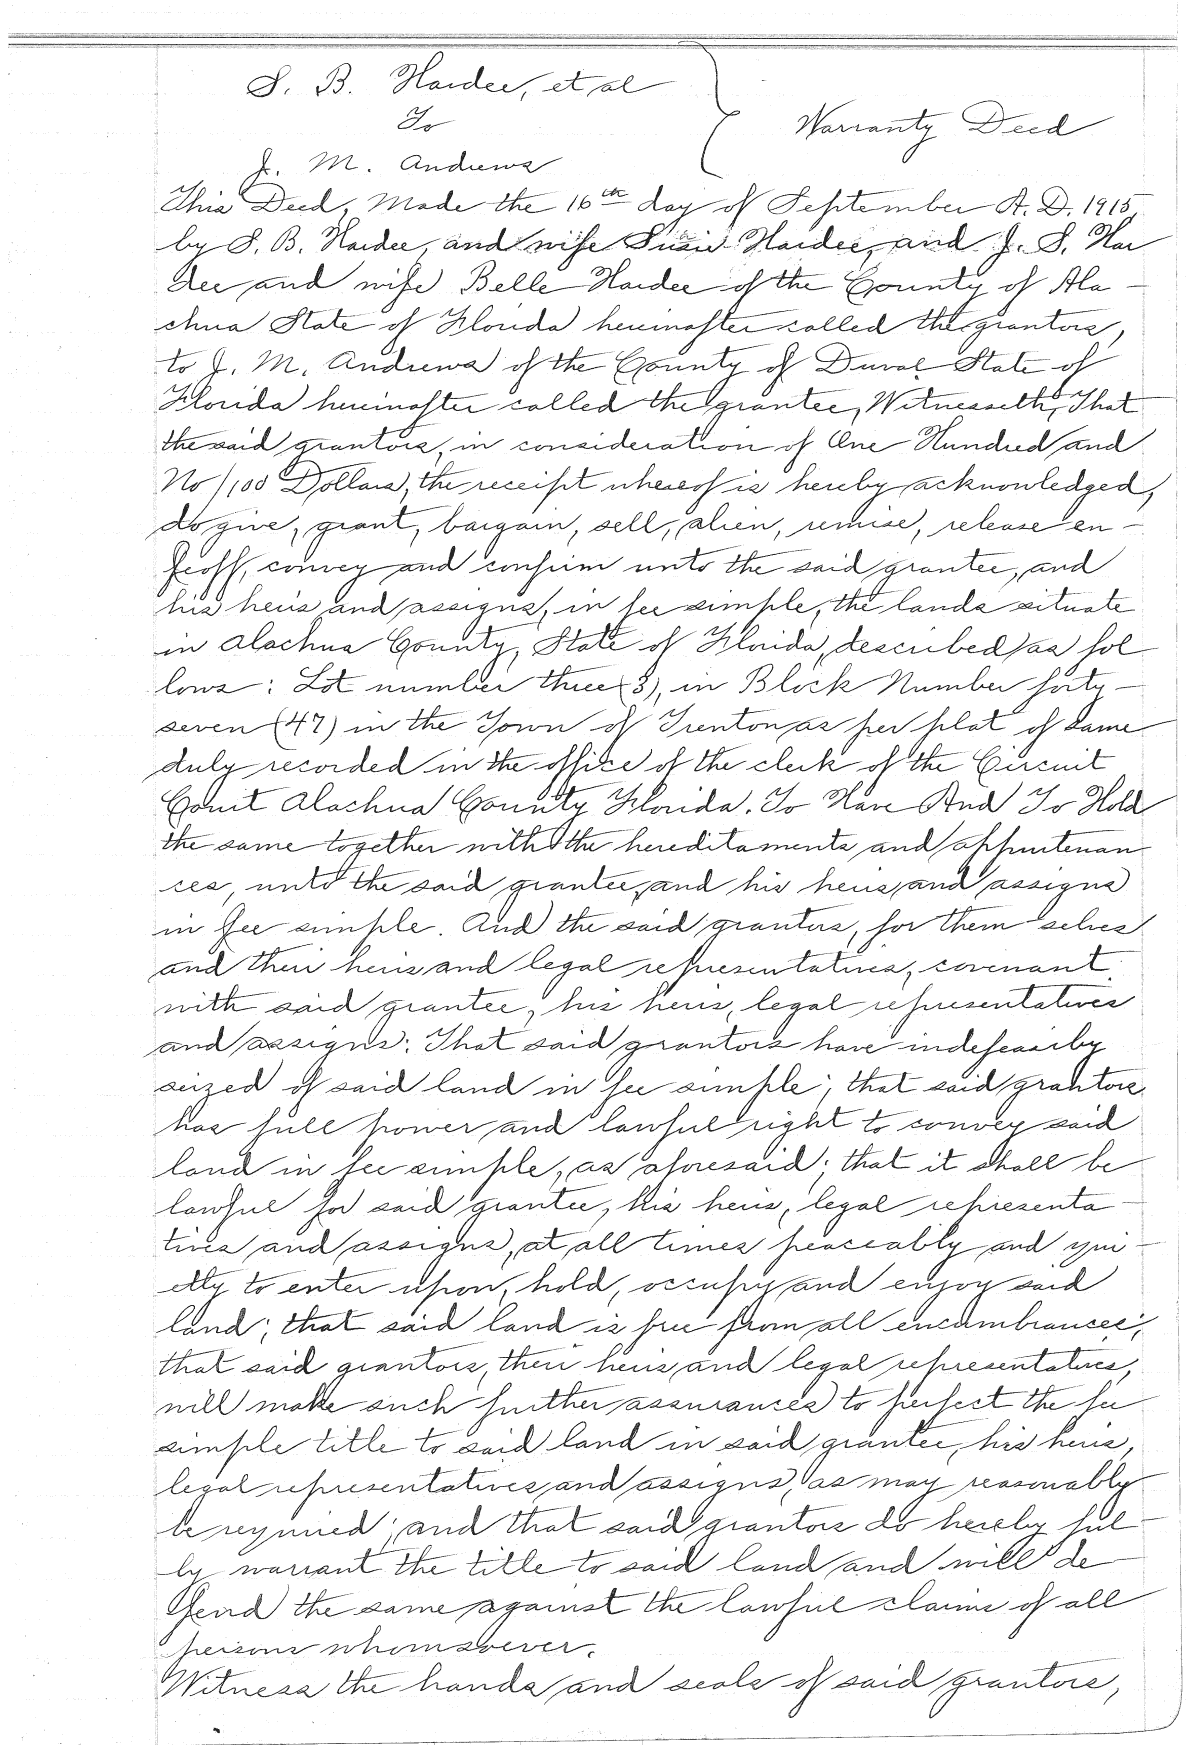 S. B. Hardee, et al
To
J. M. Andrews
Warranty Deed
This Deed, Made the 16th day of September A. D. 1915,
by S. B. Hardee, and wife Susie Hardee, and J. S. Har
dee and wife Belle Hardee of the County of Ala-
chua State of Florida hereinafter called the grantors,
to J. M. Andrews of the County of Duval State of
Florida hereinafter called the grantee, Witnesseth, That
the said grantors, in consideration of One Hundred and
No/100 Dollars, the receipt whereof is hereby acknowledged,
do give, grant, bargain, sell, alien, remise, release en-
feoff, convey and confirm unto the said grantee, and
his heirs and assigns, in fee simple, the lands situate
in Alachua County, State of Florida, described as fol
lows: Lot number three (3), in Block Number forty-
seven (47) in the Town of Trenton as per plat of same
duly recorded in the office of the clerk of the Circuit
Court Alachua County Florida. To Have And To Hold
the same together with the hereditaments and appurtenan
ces, unto the said grantee, and his heirs and assigns
in fee simple. And the said grantors, for them selves
and their heirs and legal representatives, covenant
with said grantee, his heirs, legal representatives
and assigns: That said grantors have indefeasiby
seized of said land in fee simple; that said grantors
has full power and lawful right to convey said
land in fee simple, as aforesaid; that it shall be
lawful for said grantee, his heirs, legal representa-
tives and assigns, at all times peaceably and qui-
etly to enter upon, hold, occupy and enjoy said
land; that said land is free from all encumbrances;
that said grantors, their heirs and legal representatives,
will make such further assurances to perfect the fee
simple title to said land in said grantee, his heirs,
legal representatives and assigns, as may reasonably
be required; and that said grantors do hereby ful-
ly warrant the title to said land and will de-
fend the same against the lawful claims of all
persons whomsoever.
Witness the hands and seals of said grantors,